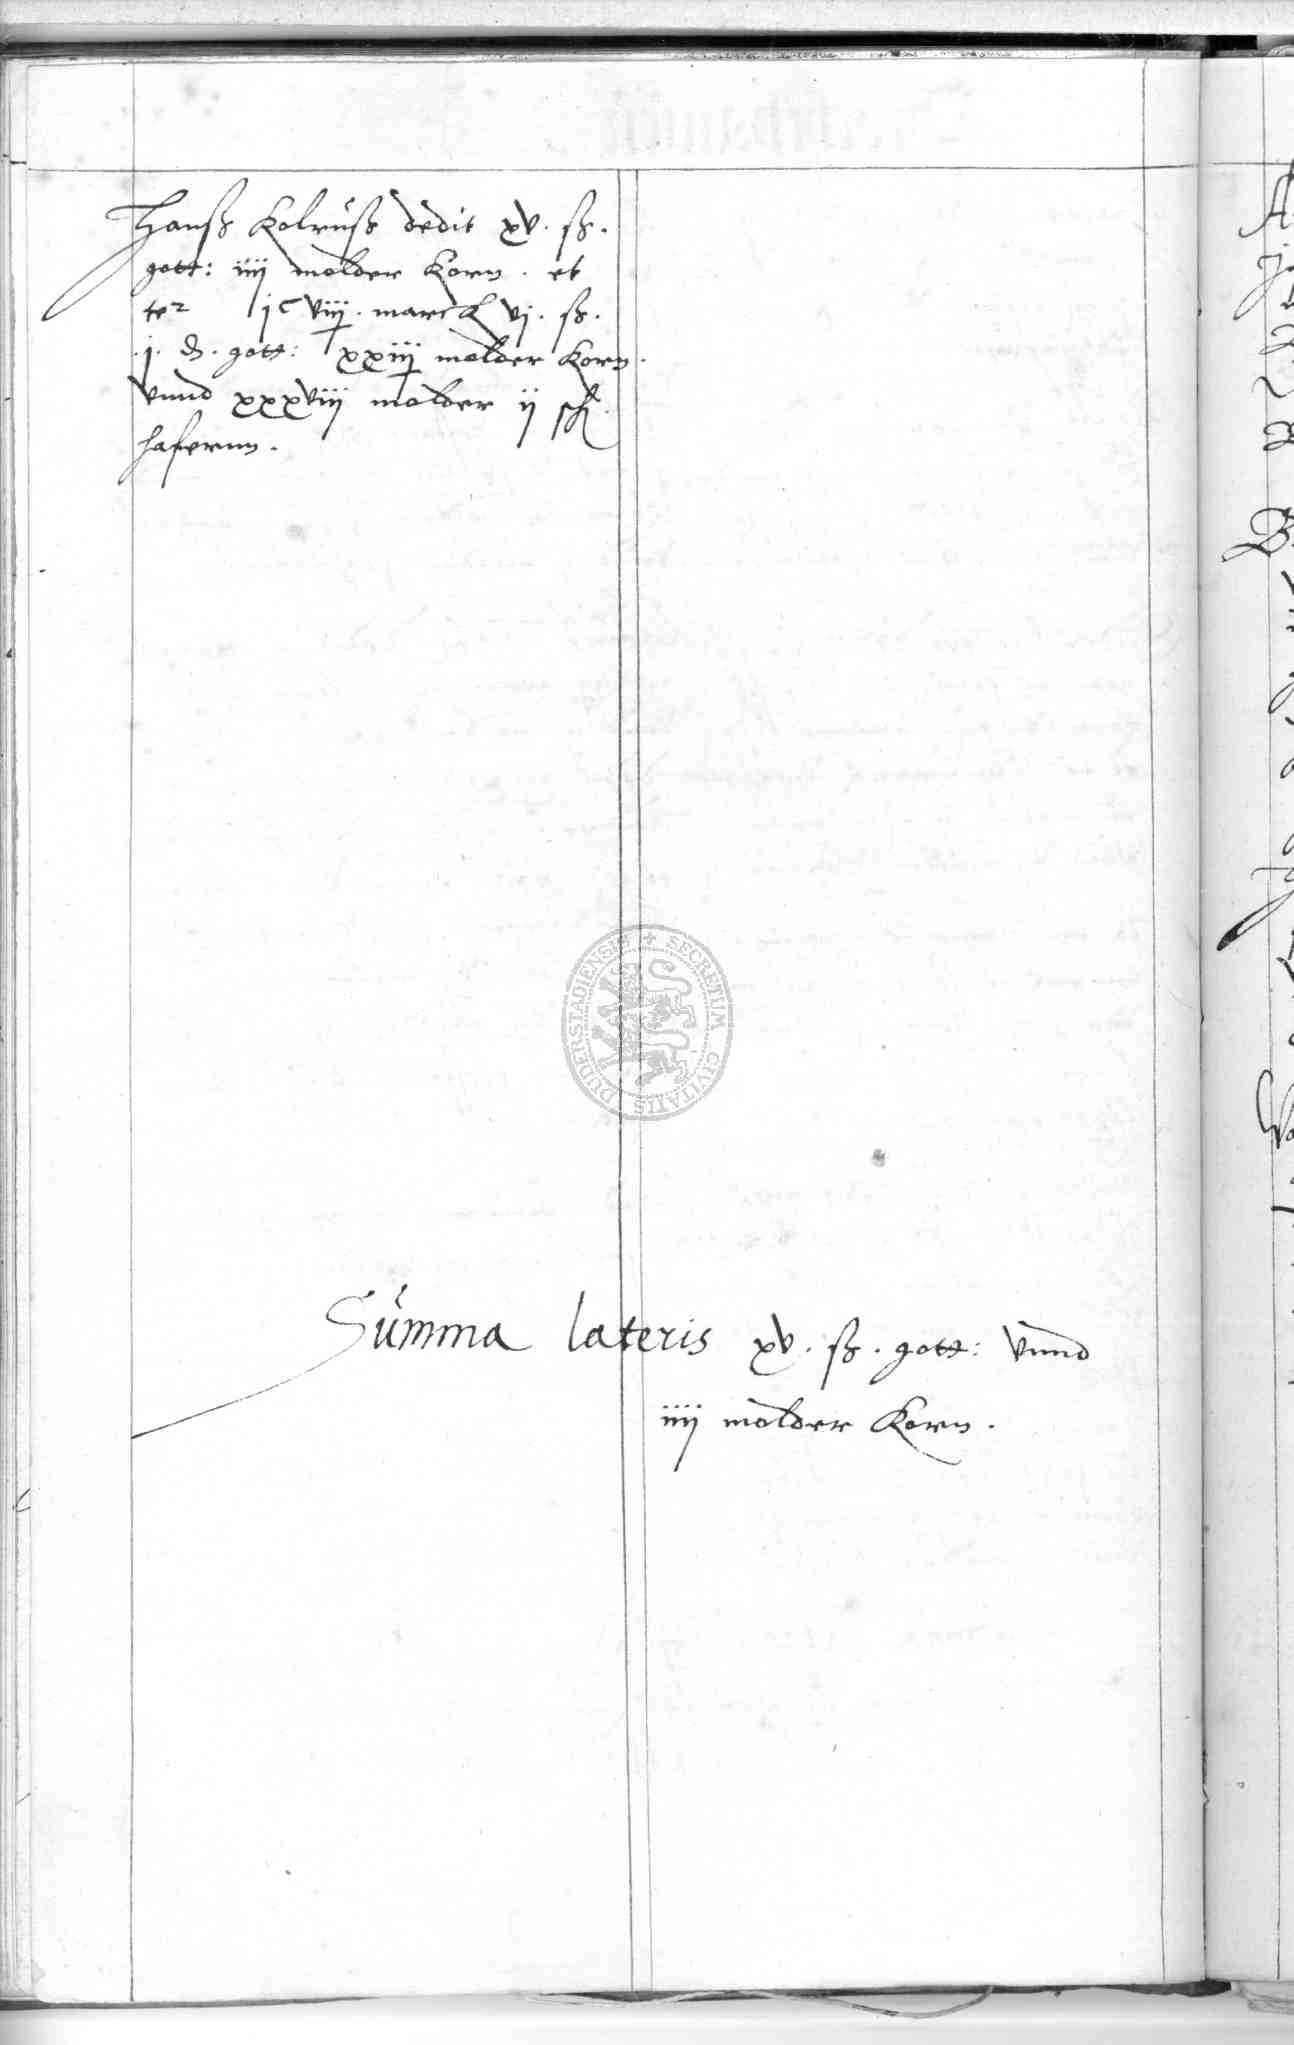 Hanß Kolruß dedit xv. ß.
gott: iiij molder Korn. et
te² jᶜ viij. marck vj. ß.
.j. ₰. gott: xxiij molder Korn.
vnnd xxxviij molder ij
hafernn.
SECRETUM CIVITATIS DUDERSTADIENSIS
Summa lateris xv. ß. gott: vnnd
iiij molder Korn.